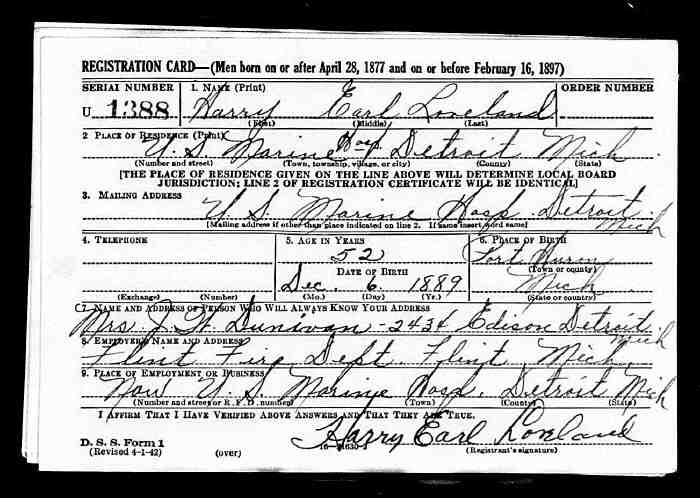 REGISTRATION CARD—(Men born on or after April 28, 1877 and on or before February 16, 1897)
SERIAL NUMBER 1. NAME (Print) ORDER NUMBER
U 1388 Harry Earl Loveland
(First) (Middle) (Last)
2. PLACE OF RESIDENCE (Print)
U. S. Marine Hosp. Detroit Mich
(Number and street) (Town, township, village, or city) (County) (State)
[THE PLACE OF RESIDENCE GIVEN ON THE LINE ABOVE WILL DETERMINE LOCAL BOARD
JURISDICTION; LINE 2 OF REGISTRATION CERTIFICATE WILL BE IDENTICAL]
3. MAILING ADDRESS
U. S. Marine Hosp. Detroit. Mich
[Mailing address if other than place indicated on line 2. If same insert word same]
4. TELEPHONE 5. AGE IN YEARS 6. PLACE OF BIRTH
52 Port Huron
DATE OF BIRTH (Town or county)
Dec. 6. 1889 Mich
(Exchange) (Number) (Mo.) (Day) (Yr.) (State or country)
7. NAME AND ADDRESS OF PERSON WHO WILL ALWAYS KNOW YOUR ADDRESS
Mrs. J. W. Dunivan - 2434 Edison Detroit. Mich
8. EMPLOYER'S NAME AND ADDRESS
Flint Fire Dept. Flint, Mich.
9. PLACE OF EMPLOYMENT OR BUSINESS
Now U. S. Marine Hosp. Detroit Mich
(Number and street or R. F. D. number) (Town) (County) (State)
I AFFIRM THAT I HAVE VERIFIED ABOVE ANSWERS AND THAT THEY ARE TRUE.
Harry Earl Loveland
D. S. S. Form 1
(Revised 4-1-42) (over) (Registrant's signature)